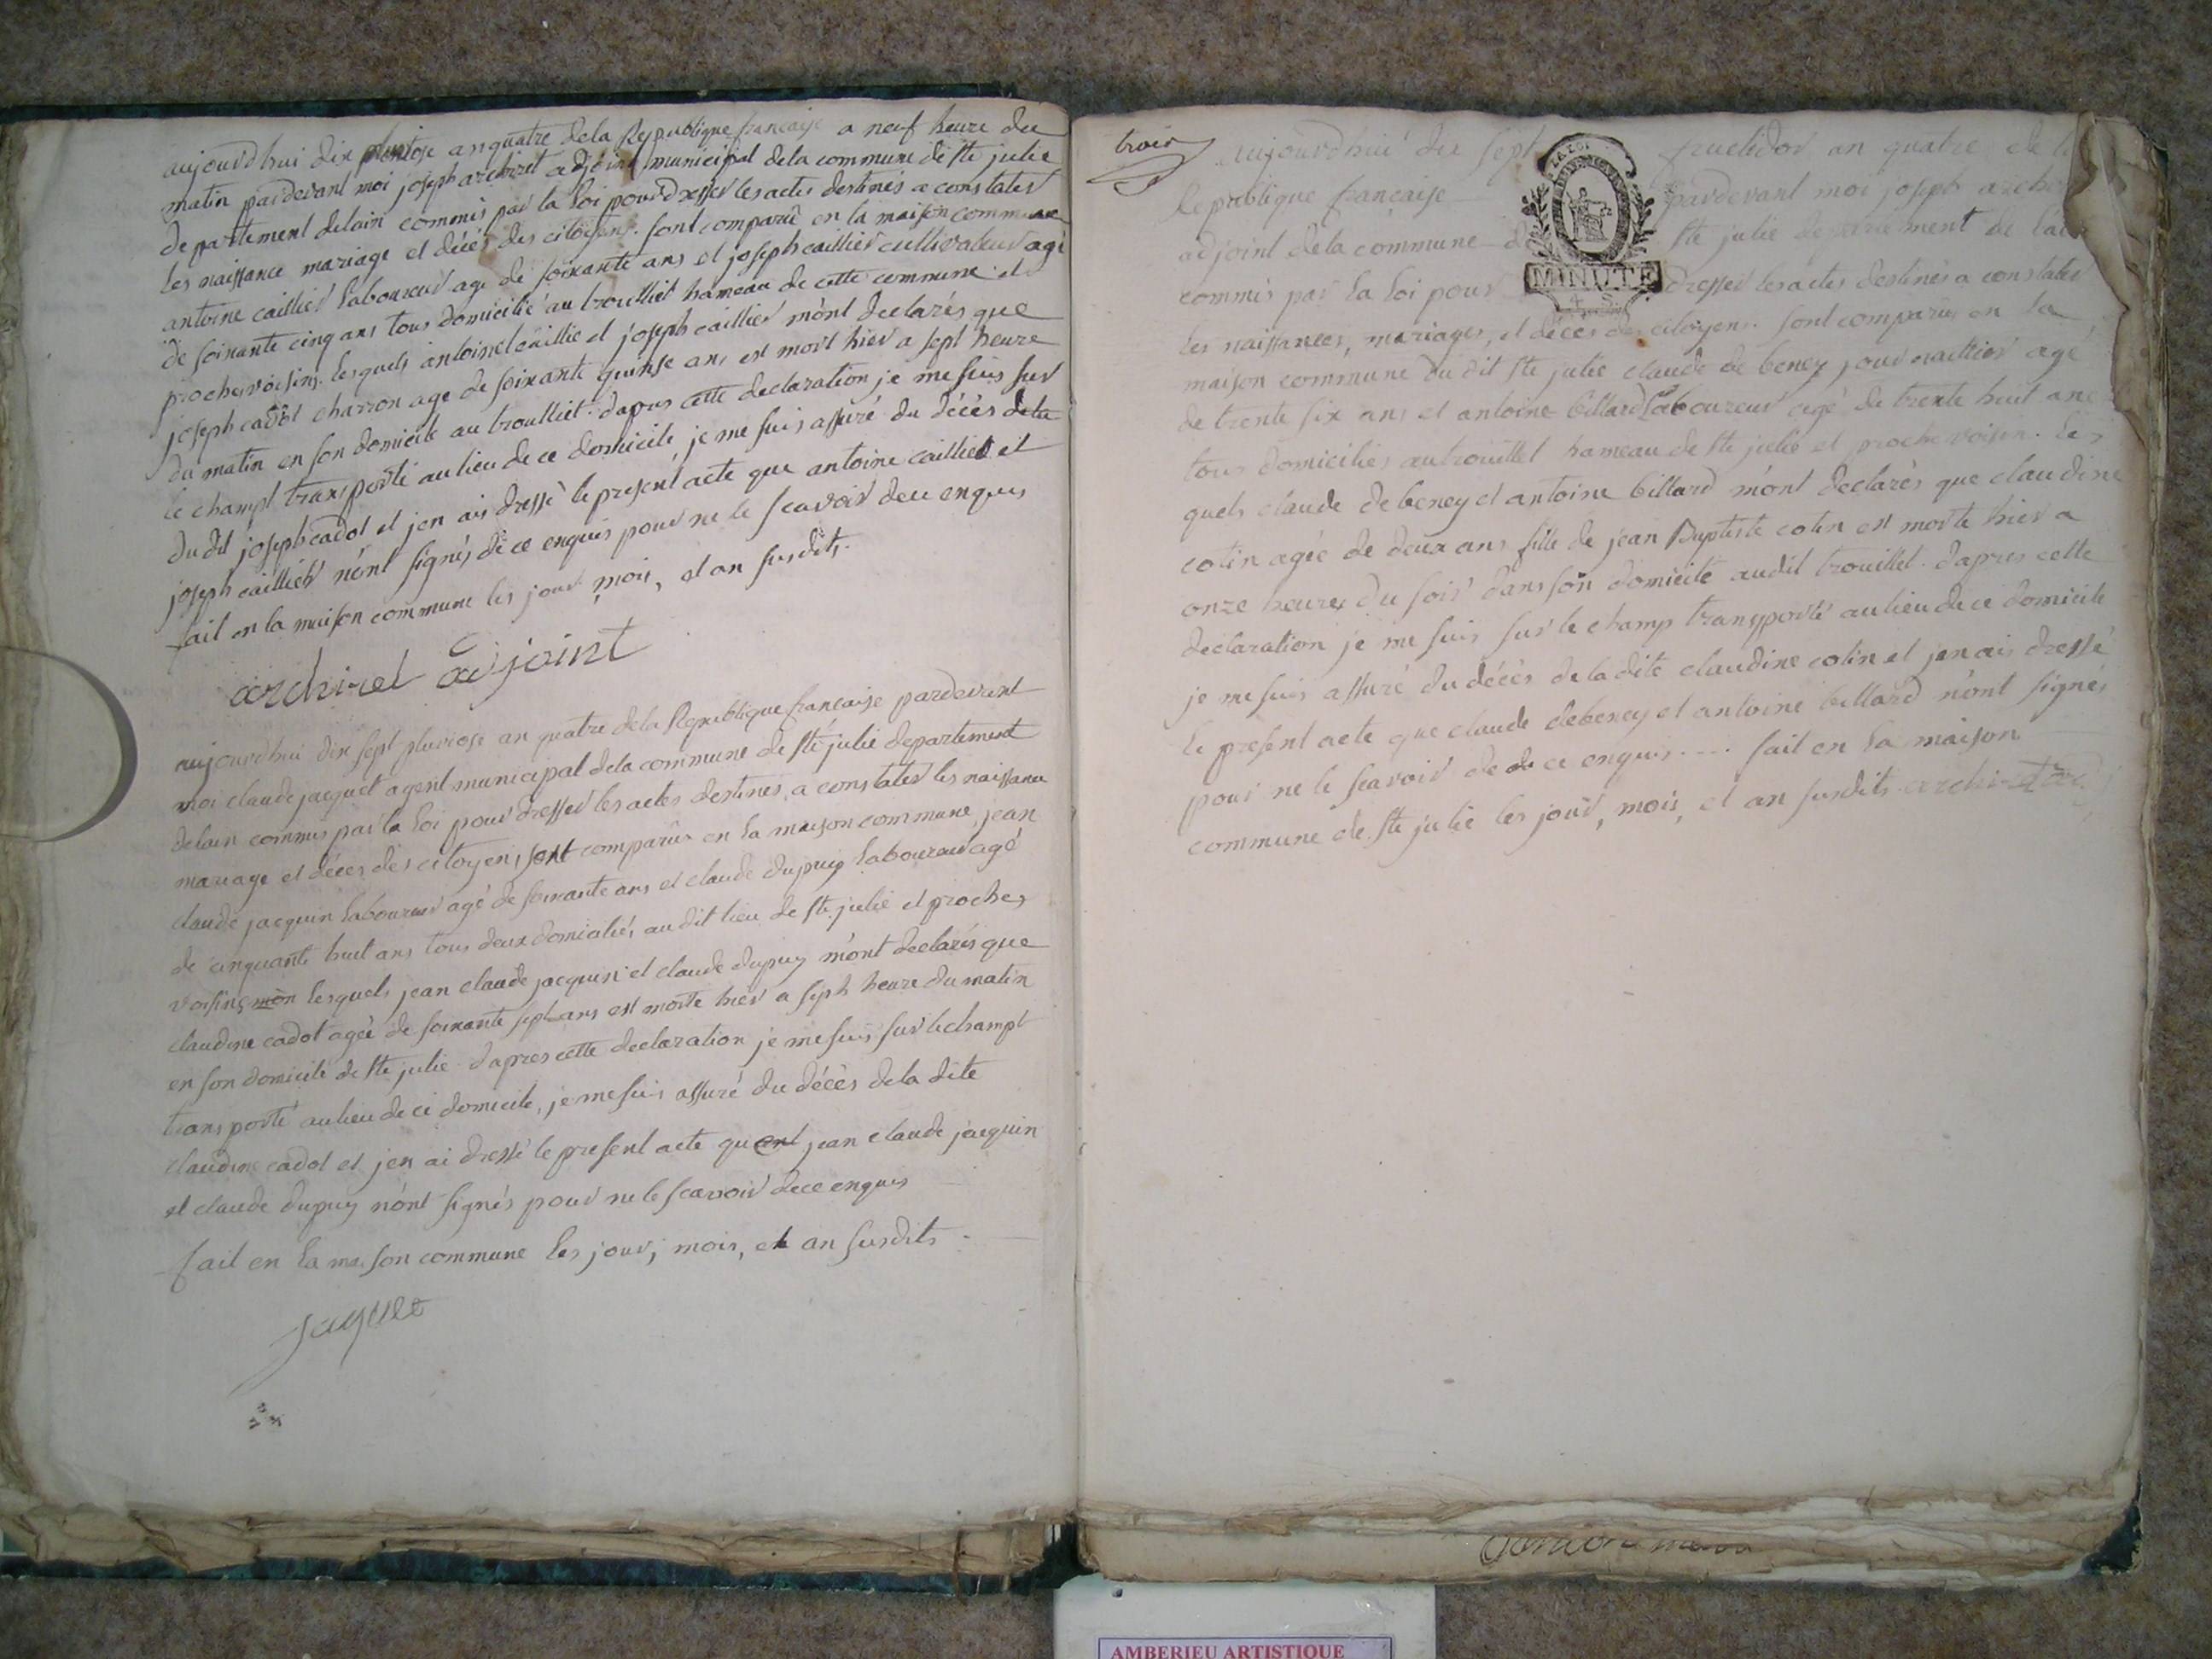 aujourdhui dix pluviose an quatre dela Republique francaise a neuf heure du
matin pardevant moi joseph archiret adjoint municipal dela commune de ste julie
departement delain commis par la loi pour dresser les actes destinés a constater
les naissance mariage et décés des citoïens. sont comparû en la maison commune
antoine caillier laboureur age de soixante ans et joseph caillier cultivateur agé
de soixante cinq ans tous domicilié au trouilliet hameau de cette commune et
proches voisins. lesquels antoine caillie et joseph caillier m'ont declarés que
joseph cadot charron age de soixante quinse ans est mort hier a sept heure
du matin en son domicile au trouilliet. dapres cette declaration je me suis sur
le champt transporté au lieu de ce domicile, je me suis assuré du décès dela
du dit joseph cadot et jen ais dressé le present acte que antoine caillier et
joseph caillier n'ont signés de ce enquis pour ne le scavoir dece enquis
fait en la maison commune les jour, mois, et an susdits.
archiret adjoint
aujourdhui dix sept pluviose an quatre dela Republique francaise pardevant
moi claude jacquet agent municipal dela commune de ste julie departement
delain commis par la loi pour dresser les actes destinés a constater les naissance
mariage et décés des citoyens, sont comparûs en la maison commune, jean
claude jacquin laboureur agé de soixante ans et claude dupuy laboureur agé
de cinquante huit ans tous deux domiciliés au dit lieu de ste julie et proches
voisins mon lesquels jean claude jacquin et claude dupuy m'ont declarés que
claudine cadot agée de soixante sept ans est morte hier a seph heure du matin
en son domicile de ste julie. dapres cette declaration je me suis sur le champt
transporté au lieu de ce domicile, je me suis assuré du décès dela dite
claudine cadot et jen ai dressé le present acte quent jean claude jacquin
et claude dupuy n'ont signés pour ne le scavoir dece enquis
fait en la maison commune les jour, mois, et an susdits.
jaquet
trois
LA LOI
MINUTE
4. S.
Aujourdhui dix sept fructidor an quatre de la
Republique francaise pardevant moi joseph arch
adjoint dela commune de ste julie departement de lain
commis par la loi pour dresser les actes destinés a constater
les naissances, mariages, et décès des citoyens. sont comparûs en la
maison commune du dit ste julie claude de beney jour agé
de trente six ans et antoine billard laboureur agé de trente huit ans
tous domiciliés au trouillet hameau de ste julie et proche voisin. les
quels claude debeney et antoine billard m'ont declarés que claudine
cotin agée de deux ans fille de jean Baptiste cotin est morte hier a
onze heures du soir dans son domicile audit trouillet. dapres cette
declaration je me suis sur le champ transporté au lieu de ce domicile
je me suis assuré du décès dela dite claudine cotin et jen ais dressé
le present acte que claude debeney et antoine billard n'ont signés
pour ne le scavoir de de ce enquis.... fait en la maison
commune de ste julie les jour, mois, et an susdits.
AMBERIEU ARTISTIQUE